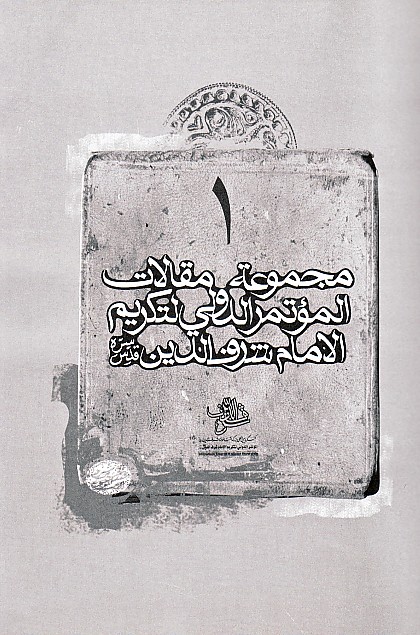 ١
مجموعة مقالات
المؤتمر الدولي لتكريم
الامام شرف الدين قدس سره
شرف الدين